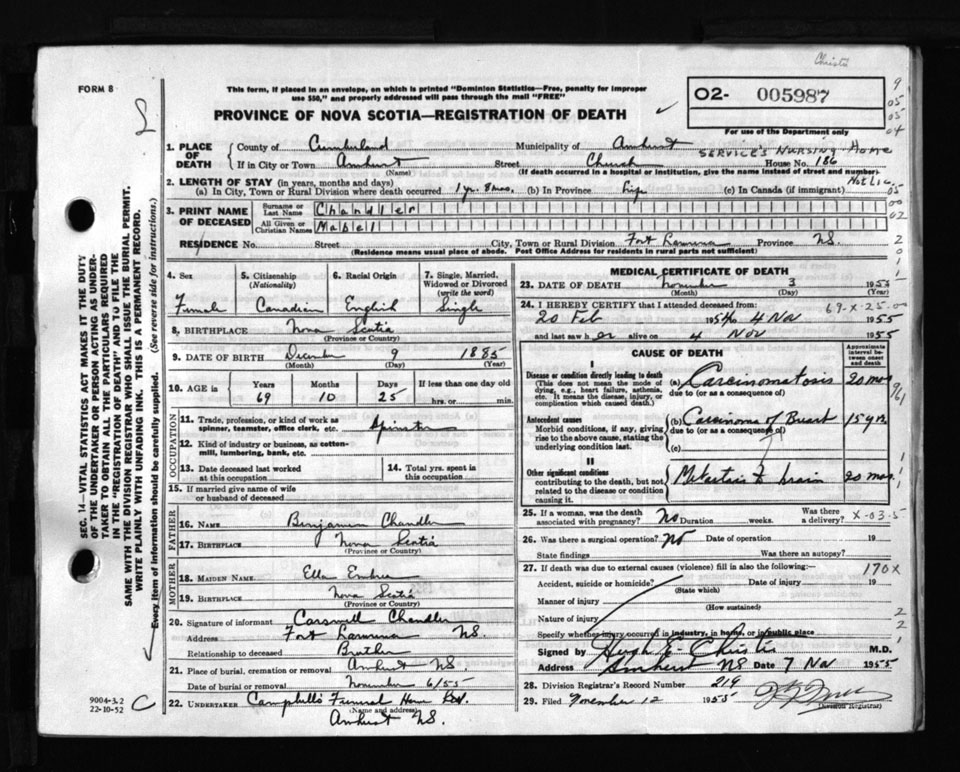 Christie
FORM 8
This form, if placed in an envelope, on which is printed "Dominion Statistics—Free, penalty for improper
use $50," and properly addressed will pass through the mail "FREE"
PROVINCE OF NOVA SCOTIA—REGISTRATION OF DEATH
O2- 005987
For use of the Department only
1. PLACE OF DEATH
County of Cumberland Municipality of Amherst
SERVICE'S NURSING HOME
If in City or Town Amherst Street Church House No. 186
(Name) (If death occurred in a hospital or institution, give the name instead of street and number)
Not Lic.
2. LENGTH OF STAY (in years, months and days)
(a) In City, Town or Rural Division where death occurred 1 yr. 8 mos. (b) In Province Life (c) In Canada (if immigrant)
3. PRINT NAME OF DECEASED
Surname or Last Name Chandler
All Given or Christian Names Mabel
RESIDENCE No. Street City, Town or Rural Division Fort Lawrence Province NS.
(Residence means usual place of abode. Post Office Address for residents in rural parts not sufficient)
4. Sex
Female
5. Citizenship (Nationality)
Canadian
6. Racial Origin
English
7. Single, Married, Widowed or Divorced (write the word)
Single
8. BIRTHPLACE Nova Scotia
(Province or Country)
9. DATE OF BIRTH December 9 1885
(Month) (Day) (Year)
10. AGE is
Years Months Days If less than one day old
69 10 25 hrs. or min.
OCCUPATION
11. Trade, profession, or kind of work as spinner, teamster, office clerk, etc. Spinster
12. Kind of industry or business, as cotton-mill, lumbering, bank, etc.
13. Date deceased last worked at this occupation
14. Total yrs. spent in this occupation
15. If married give name of wife or husband of deceased
FATHER
16. NAME Benjamin Chandler
17. BIRTHPLACE Nova Scotia
(Province or Country)
MOTHER
18. MAIDEN NAME Ella Embree
19. BIRTHPLACE Nova Scotia
(Province or Country)
20. Signature of informant Carswell Chandler
Address Fort Lawrence NS.
Relationship to deceased Brother
21. Place of burial, cremation or removal Amherst NS
Date of burial or removal November 6/55
22. UNDERTAKER Campbell's Funeral Home Ltd.
(Name and address)
Amherst NS.
MEDICAL CERTIFICATE OF DEATH
23. DATE OF DEATH November 3 195
(Month) (Day)
24. I HEREBY CERTIFY that I attended deceased from: 69-X-25-
20 Feb 1954 to 4 Nov 1955
and last saw her alive on 4 Nov 1955
CAUSE OF DEATH
Approximate interval between onset and death
I
Disease or condition directly leading to death
(This does not mean the mode of dying, e.g., heart failure, asthenia, etc. It means the disease, injury, or complication which caused death.)
(a) Carcinomatosis 20 mos
due to (or as a consequence of)
Antecedent causes
Morbid conditions, if any, giving rise to the above cause, stating the underlying condition last.
(b) Carcinoma of Breast 15 yrs.
due to (or as a consequence of)
(c)
II
Other significant conditions
contributing to the death, but not related to the disease or condition causing it.
Metastasis to brain 20 mos.
25. If a woman, was the death associated with pregnancy? No Duration weeks. Was there a delivery? X-03-5
26. Was there a surgical operation? No Date of operation 19
State findings Was there an autopsy?
27. If death was due to external causes (violence) fill in also the following:— 170X
Accident, suicide or homicide? Date of injury 19
(State which)
Manner of injury
(How sustained)
Nature of injury
Specify whether injury occurred in industry, in home, or in public place
Signed by Hugh E. Christie M.D.
Address Amherst NS Date 7 Nov 1955
28. Division Registrar's Record Number 219
29. Filed November 12 1955
(Division Registrar)
SEC. 14—VITAL STATISTICS ACT MAKES IT THE DUTY
OF THE UNDERTAKER OR PERSON ACTING AS UNDER-
TAKER TO OBTAIN ALL THE PARTICULARS REQUIRED
IN THE "REGISTRATION OF DEATH" AND TO FILE THE
SAME WITH THE DIVISION REGISTRAR WHO SHALL ISSUE THE BURIAL PERMIT.
WRITE PLAINLY WITH UNFADING INK. THIS IS A PERMANENT RECORD.
Every item of information should be carefully supplied. (See reverse side for instructions.)
9004-3.2
22-10-52
C